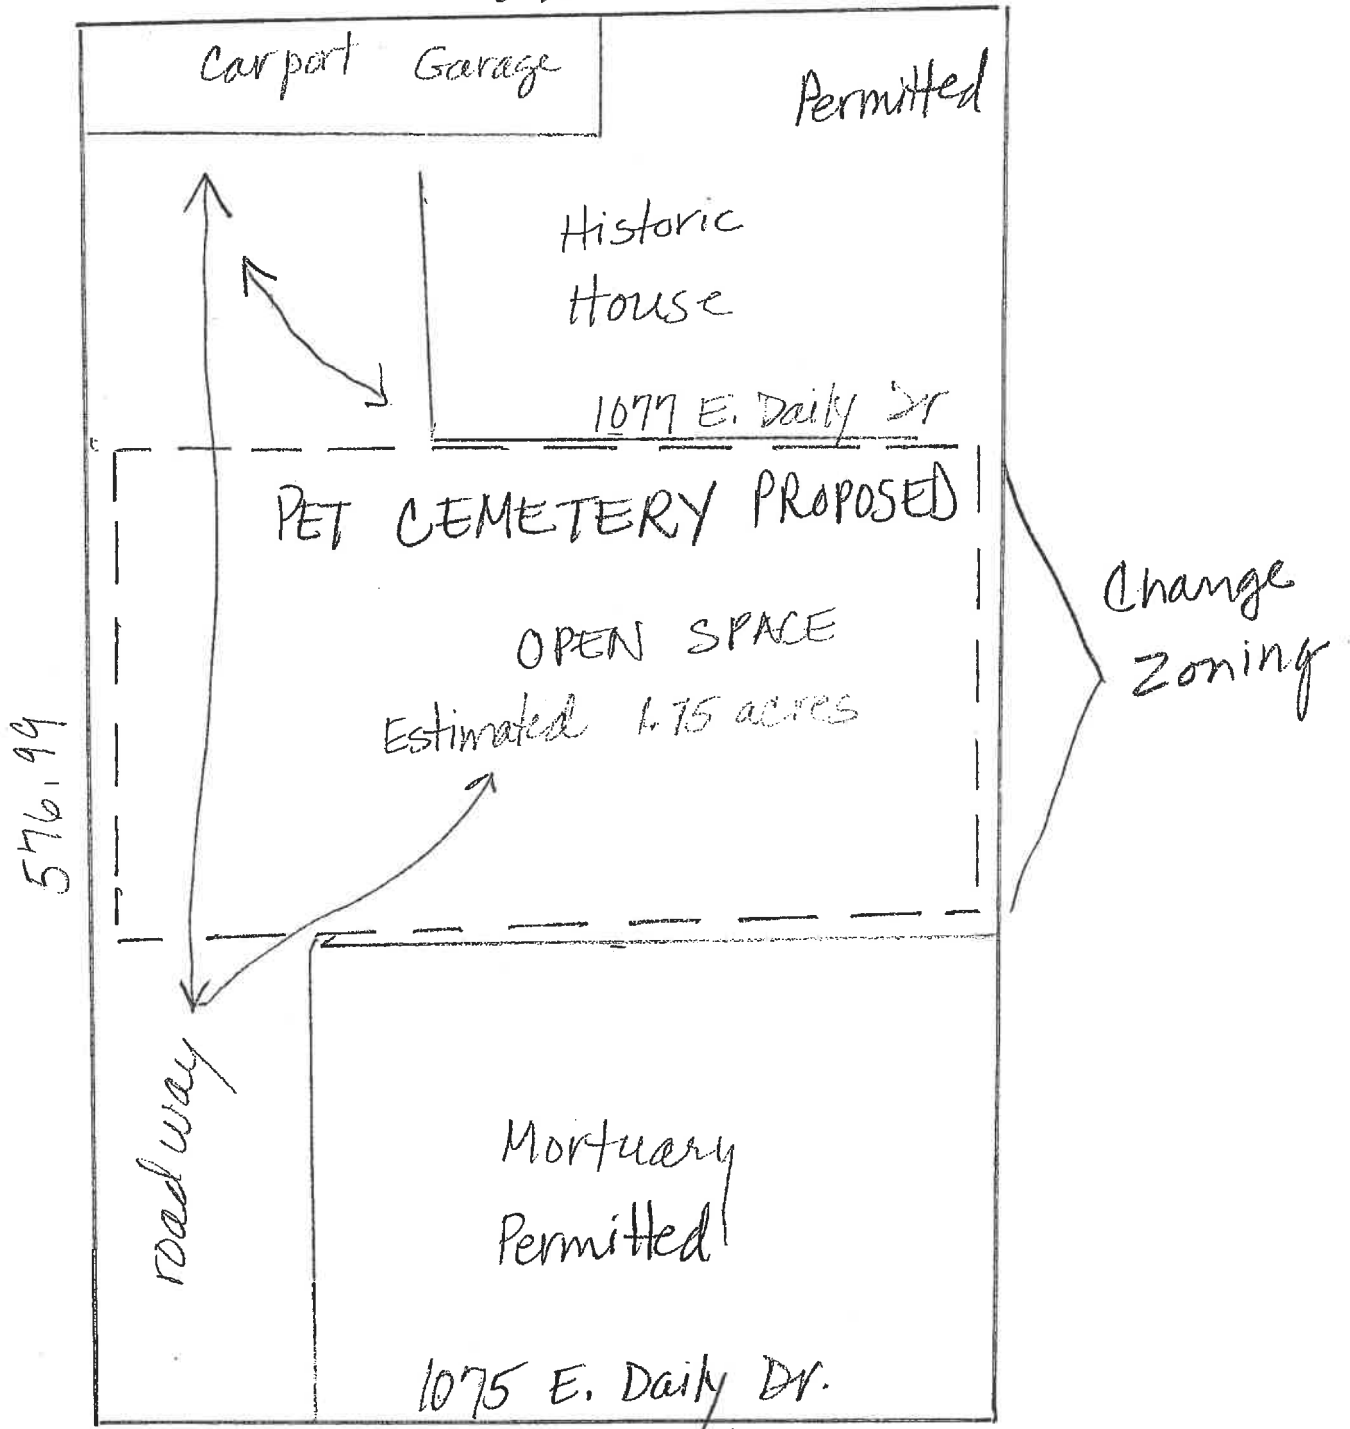 Carport Garage
Permitted
Historic
House
1077 E. Daily Dr
PET CEMETERY PROPOSED
OPEN SPACE
Estimated 1.75 acres
Change
Zoning
576.99
roadway
Mortuary
Permitted
1075 E. Daily Dr.